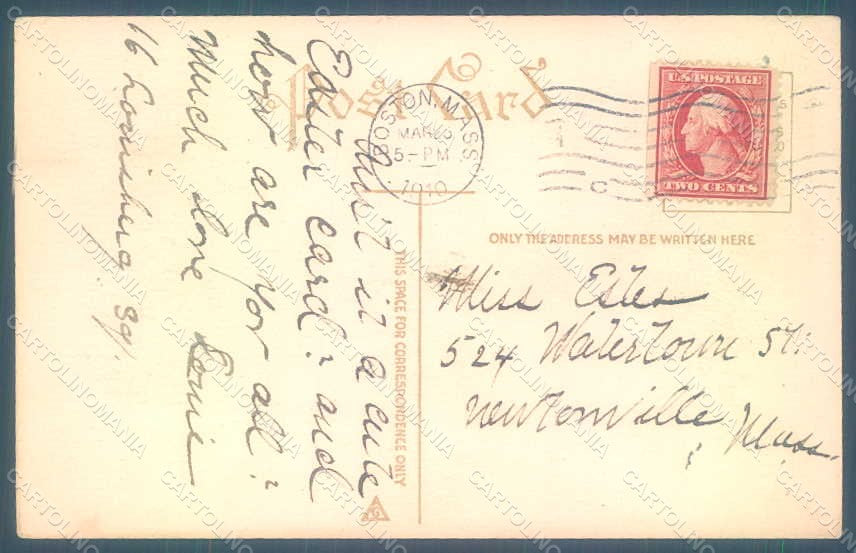 Post Card
BOSTON, MASS.
MAR 26
5-PM
1910
U.S. POSTAGE
TWO CENTS
THIS SPACE FOR CORRESPONDENCE ONLY
ONLY THE ADDRESS MAY BE WRITTEN HERE
Isn't it a cute
Easter card? and
how are you all?
Much love
16 Louisburg Sq.
Miss Estes
524 Watertown St.
Newtonville
Mass.
G
CARTOLINOMANIA